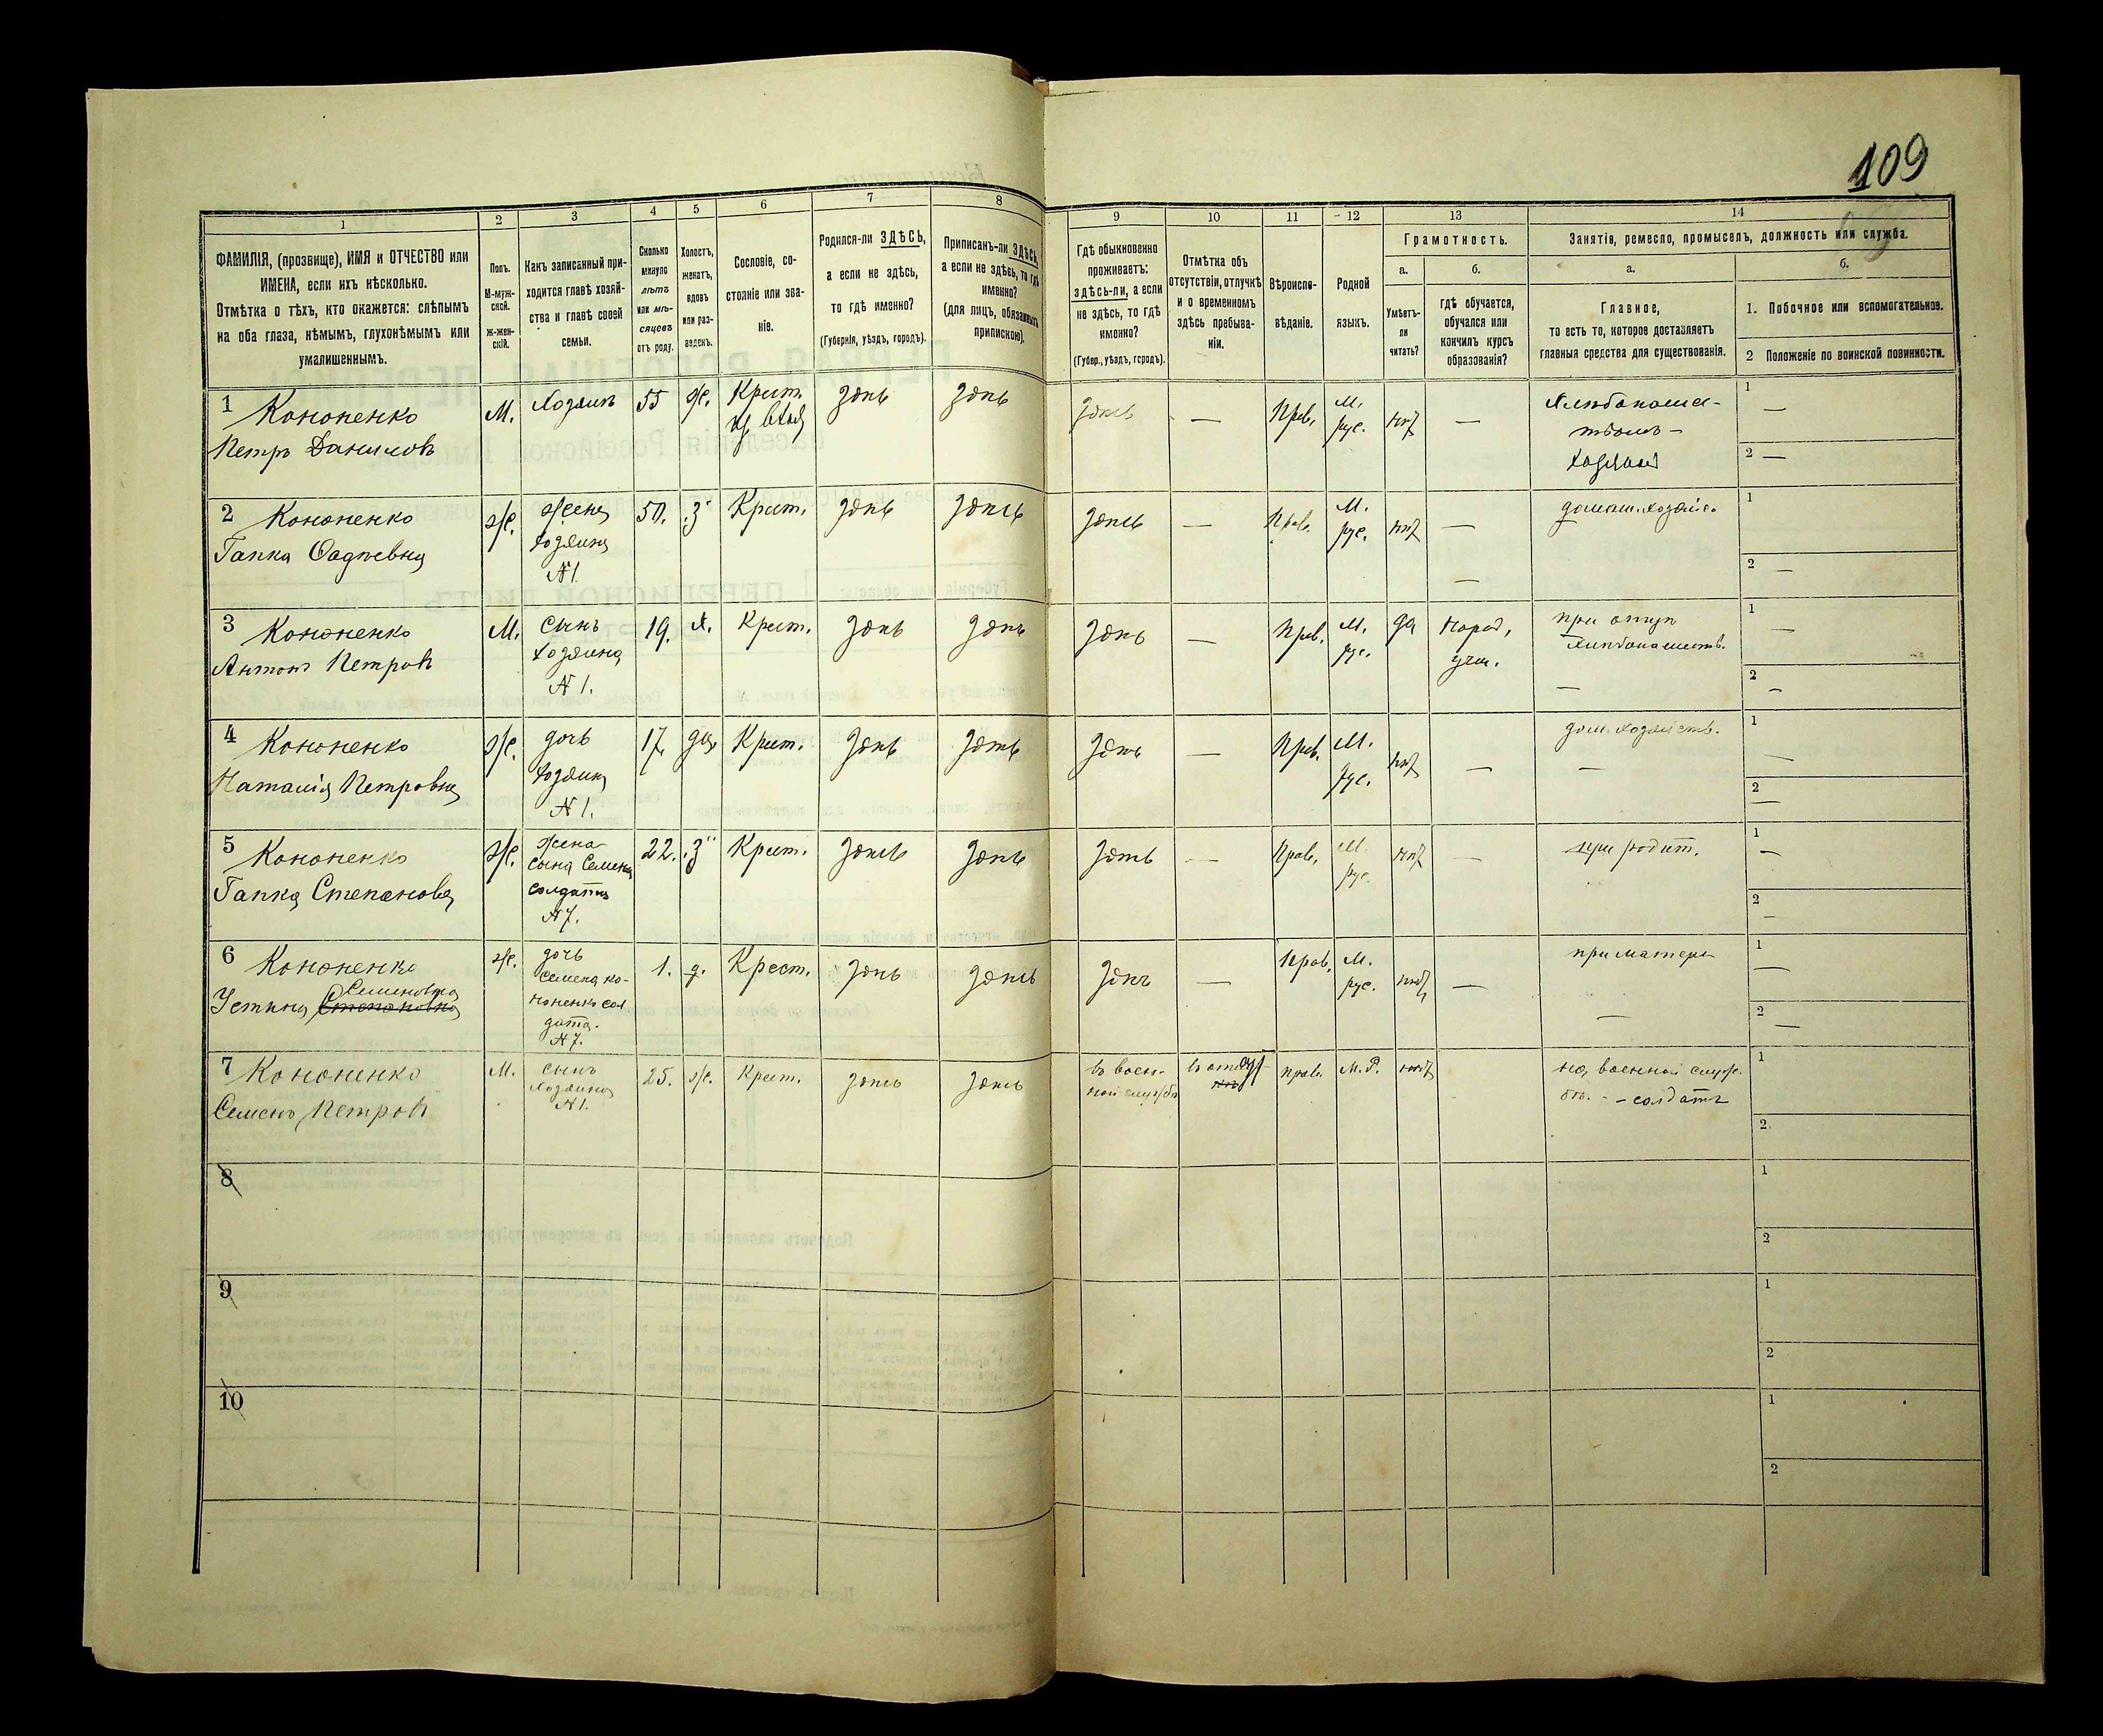 109
1
2
3
4
5
6
7
8
9
10
11
12
13
14
ФАМИЛІЯ, (прозвище), ИМЯ и ОТЧЕСТВО или
ИМЕНА, если ихъ нѣсколько.
Отмѣтка о тѣхъ, кто окажется: слѣпымъ
на оба глаза, нѣмымъ, глухонѣмымъ или
умалишеннымъ.
Полъ.
М-муж-
ской.
ж-жен-
скій.
Какъ записанный при-
ходится главѣ хозяй-
ства и главѣ своей
семьи.
Сколько
минуло
лѣтъ
или мѣ-
сяцевъ
отъ роду.
Холостъ,
женатъ,
вдовъ
или раз-
веденъ.
Сословіе, со-
стояніе или зва-
ніе.
Родился-ли ЗДѢСЬ,
а если не здѣсь,
то гдѣ именно?
(Губернія, уѣздъ, городъ).
Приписанъ-ли ЗДѢСЬ,
а если не здѣсь, то гдѣ
именно?
(для лицъ, обязанныхъ
припискою).
Гдѣ обыкновенно
проживаетъ:
здѣсь-ли, а если
не здѣсь, то гдѣ
именно?
(Губер., уѣздъ, городъ).
Отмѣтка объ
отсутствіи, отлучкѣ
и о временномъ
здѣсь пребыва-
ніи.
Вѣроиспо-
вѣданіе.
Родной
языкъ.
Грамотность.
а.
б.
Умѣетъ-
ли
читать?
гдѣ обучается,
обучался или
кончилъ курсъ
образованія?
Занятіе, ремесло, промыселъ, должность или служба.
а.
б.
Главное,
то есть то, которое доставляетъ
главныя средства для существованія.
1. Побочное или вспомогательное.
2 Положеніе по воинской повинности.
1 Кононенко
Петръ Даниловъ
М.
Хозяинъ
55
ж.
Крест.
здѣсь
здѣсь
здѣсь
—
Прав.
М.
рус.
нѣт
—
Хлѣбопаше-
ствомъ —
хозяинъ
1 —
2 —
2 Кононенко
Гапка
ж.
жена
хозяина
N 1
50.
з
Крест.
здѣсь
здѣсь
здѣсь
—
Прав.
М.
рус.
нѣт
—
домаш. хозяйс.
1
2 —
3 Кононенко
Антонъ Петровъ
М.
сынъ
хозяина
N 1.
19.
х.
Крест.
здѣсь
здѣсь
здѣсь
—
Прав.
М.
рус.
да
Народ.
учи.
при отцѣ
хлѣбопашеств.
1 —
2 —
4 Кононенко
Наталія Петровна
ж.
дочь
хозяина
N 1.
17
Крест.
здѣсь
здѣсь
здѣсь
—
Прав.
М.
рус.
нѣт
—
дом. хозяйств.
—
1 —
2 —
5 Кононенко
Гапка Степанова
ж.
жена
сына Семена
солдата
N 7.
22.
з
Крест.
здѣсь
здѣсь
здѣсь
—
Прав.
М.
рус.
нѣт
—
при родит.
1 —
2 —
6 Кононенко
Семеновна
Устина Степановна
ж.
дочь
Семена Ко-
ноненко сол
дата.
N 7.
1.
д.
Крест.
здѣсь
здѣсь
здѣсь
—
Прав.
М.
рус.
нѣт
—
при матери
—
1 —
2 —
7 Кононенко
Семенъ Петровъ
М.
сынъ
хозяина
N 1.
25.
ж.
Крест.
здѣсь
здѣсь
въ воен-
ной службѣ
прав.
М. Р.
нѣт
на военной служ-
бѣ. — солдатъ
1
2
8
1
2
9
1
2
10
1
2